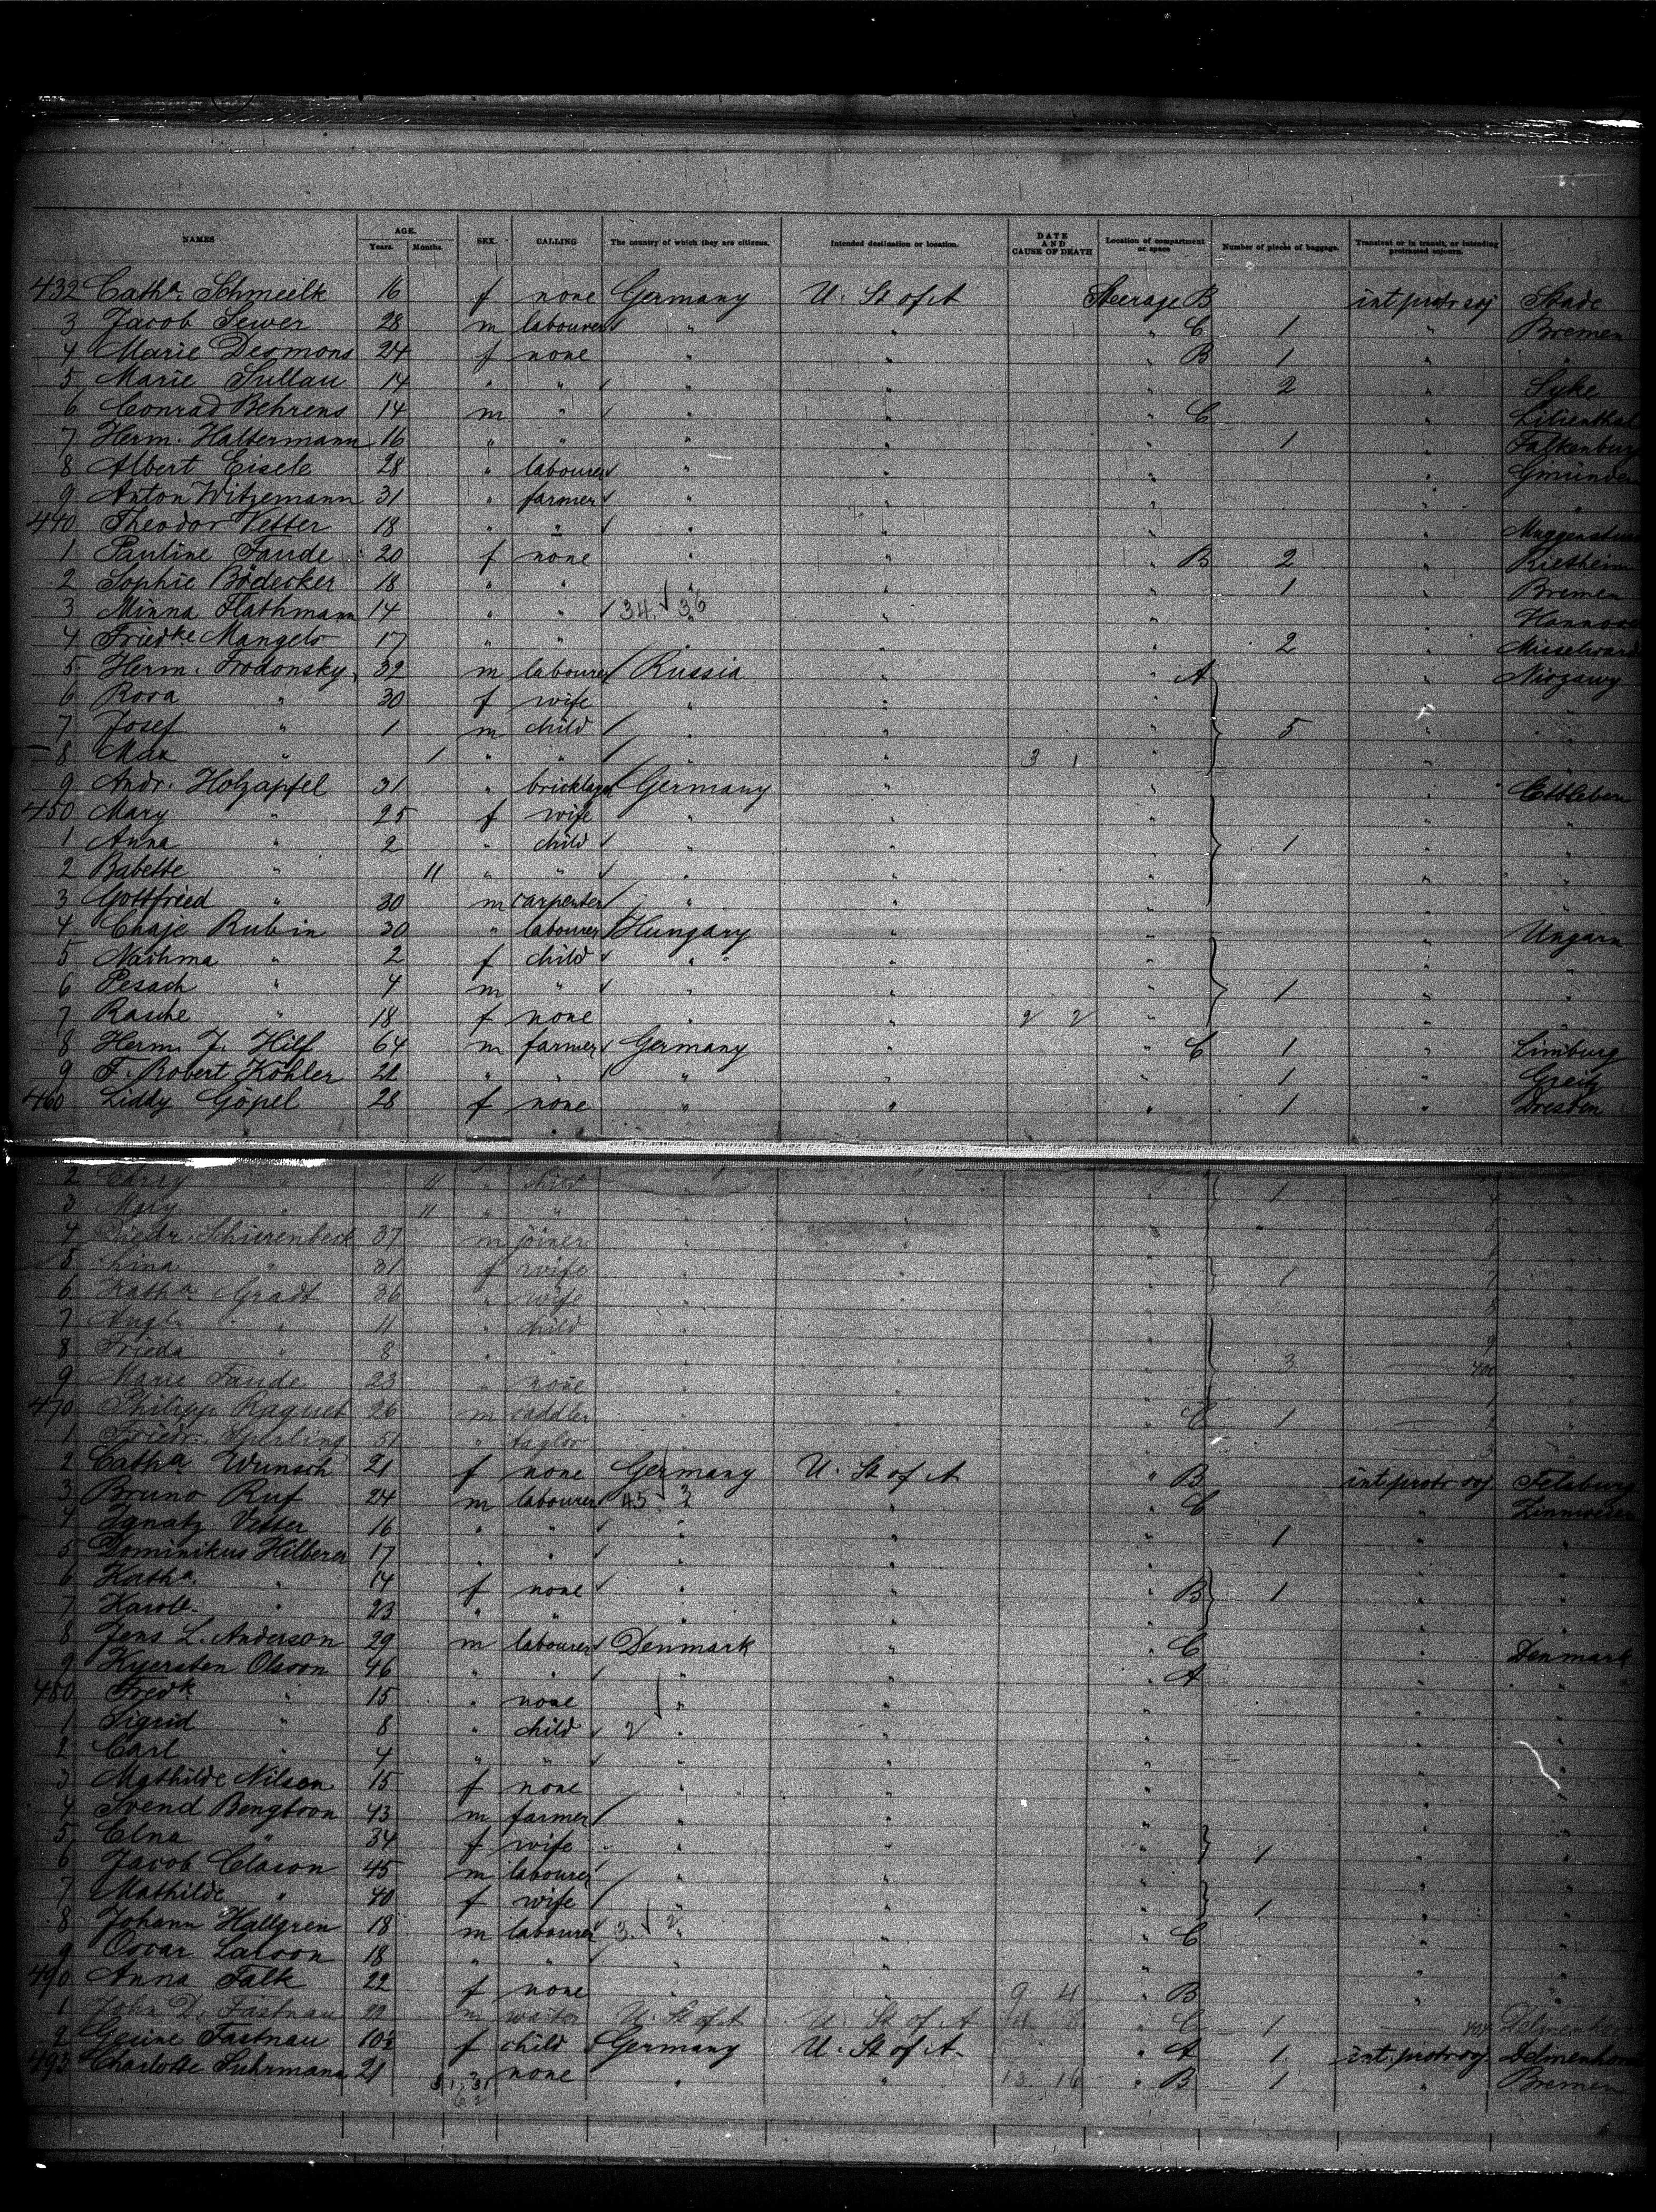 NAMES AGE. Years. Months. SEX. CALLING The country of which they are citizens. Intended destination or location. DATE AND CAUSE OF DEATH Location of compartment or space Number of pieces of baggage. Transient or in transit, or intending protracted sojourn.
432 Cath.a Schmeilk 16 f none Germany U. St of A Steerage B int protr soj Stade
3 Jacob Sewer 28 m labourer " " " C 1 " Bremen
4 Marie Desmons 24 f none " " " B 1 " "
5 Marie Sullau 14 " " " " " 2 " Syke
6 Conrad Behrens 14 m " " " " C " Lilienthal
7 Herm. Haltermann 16 " " " " " 1 " Falkenburg
8 Albert Eisele 28 " labourer " " " " Gmünden
9 Anton Witzemann 31 " farmer " " " " "
440 Theodor Vetter 18 " " " " " "
1 Pauline Faude 20 f none " " " B 2 " Rietheim
2 Sophie Bödecker 18 " " " " " 1 " Bremen
3 Minna Flathmann 14 " " 34. 36 " " " Hannover
4 Friedke Mangels 17 " " " " " 2 "
5 Herm. Frodonsky 32 m labourer Russia " " A "
6 Rosa " 30 f wife " " " " "
7 Josef " 1 m child " " " 5 " "
8 Max " 1 " " " " 3 1 " " "
9 Andr. Holzapfel 31 " bricklayer Germany " " " Ettleben
450 Mary " 25 f wife " " " " "
1 Anna " 2 " child " " " 1 " "
2 Babette " 11 " " " " " " "
3 Gottfried " 30 m carpenter " " " " "
4 Chaje Rubin 30 " labourer Hungary " " " Ungarn
5 Nachma " 2 f child " " " " "
6 Pesach " 4 m " " " " 1 " "
7 Rasche " 18 f none " " 2 2 " " "
8 Herm. J. Hilf 64 m farmer Germany " " C 1 " Limburg
9 F. Robert Köhler 21 " " " " " 1 " Greitz
460 Liddy Göpel 28 f none " " " 1 " Dresden
2 Carry " 11 " child " " " 1
3 Mary " 11 " " " " "
4 Diedr. Schierenbeck 37 m joiner " " "
5 Lina " 31 f wife " " " 1 7
6 Kath.a Gradt 36 " wife " " " 8
7 " 11 " child " " " 9
8 Frieda " 8 " " " " " 3 400
9 Marie Faude 23 " none " " " 1
470 Philipp Raquet 26 m saddler " " " C 1 2
1 Friedr. Sperling 51 " taylor " " " 3
2 Cath.a Wunsch 21 f none Germany U. St of A " B int protr soj Felsburg
3 Bruno Ruf 24 m labourer 45 " " C "
4 Ignatz Vetter 16 " " " " " 1 " "
5 Dominikus Hilberer 17 " " " " " " "
6 Kath.a " 14 f none " " " B 1 " "
7 Karol. " 23 " " " " " " "
8 Jens L. Anderson 29 m labourer Denmark " " C " Denmark
9 Kjersten Olsson 46 " " " " " A " "
480 Fredk. " 15 " none " " " " "
1 Sigrid " 8 " child 2 " " " " "
2 Carl " 4 " " " " " " "
3 Mathilde Nilsen 15 f none " " " " "
4 Svend Bengtson 43 m farmer " " " " "
5 Elna " 34 f wife " " " 1 " "
6 Jacob Clason 45 m labourer " " " " "
7 Mathilde " 40 f wife " " " 1 " "
8 Johann Hallgren 18 m labourer 3. 2 " " C " "
9 Oscar Larson 18 " " " " " " "
490 Anna Falk 22 f none " " 9 4 " B " "
1 John D. Fastnau 22 m waiter U. St of A U. St of A " C 1 Delmenhorst
2 Gesine Fastnau 10½ f child Germany U. St of A. " A 1 int. protr soj. Delmenhorst
493 Charlotte Suhrmann 21 none " " 13. 16 " B 1 " Bremen
31. 31
62